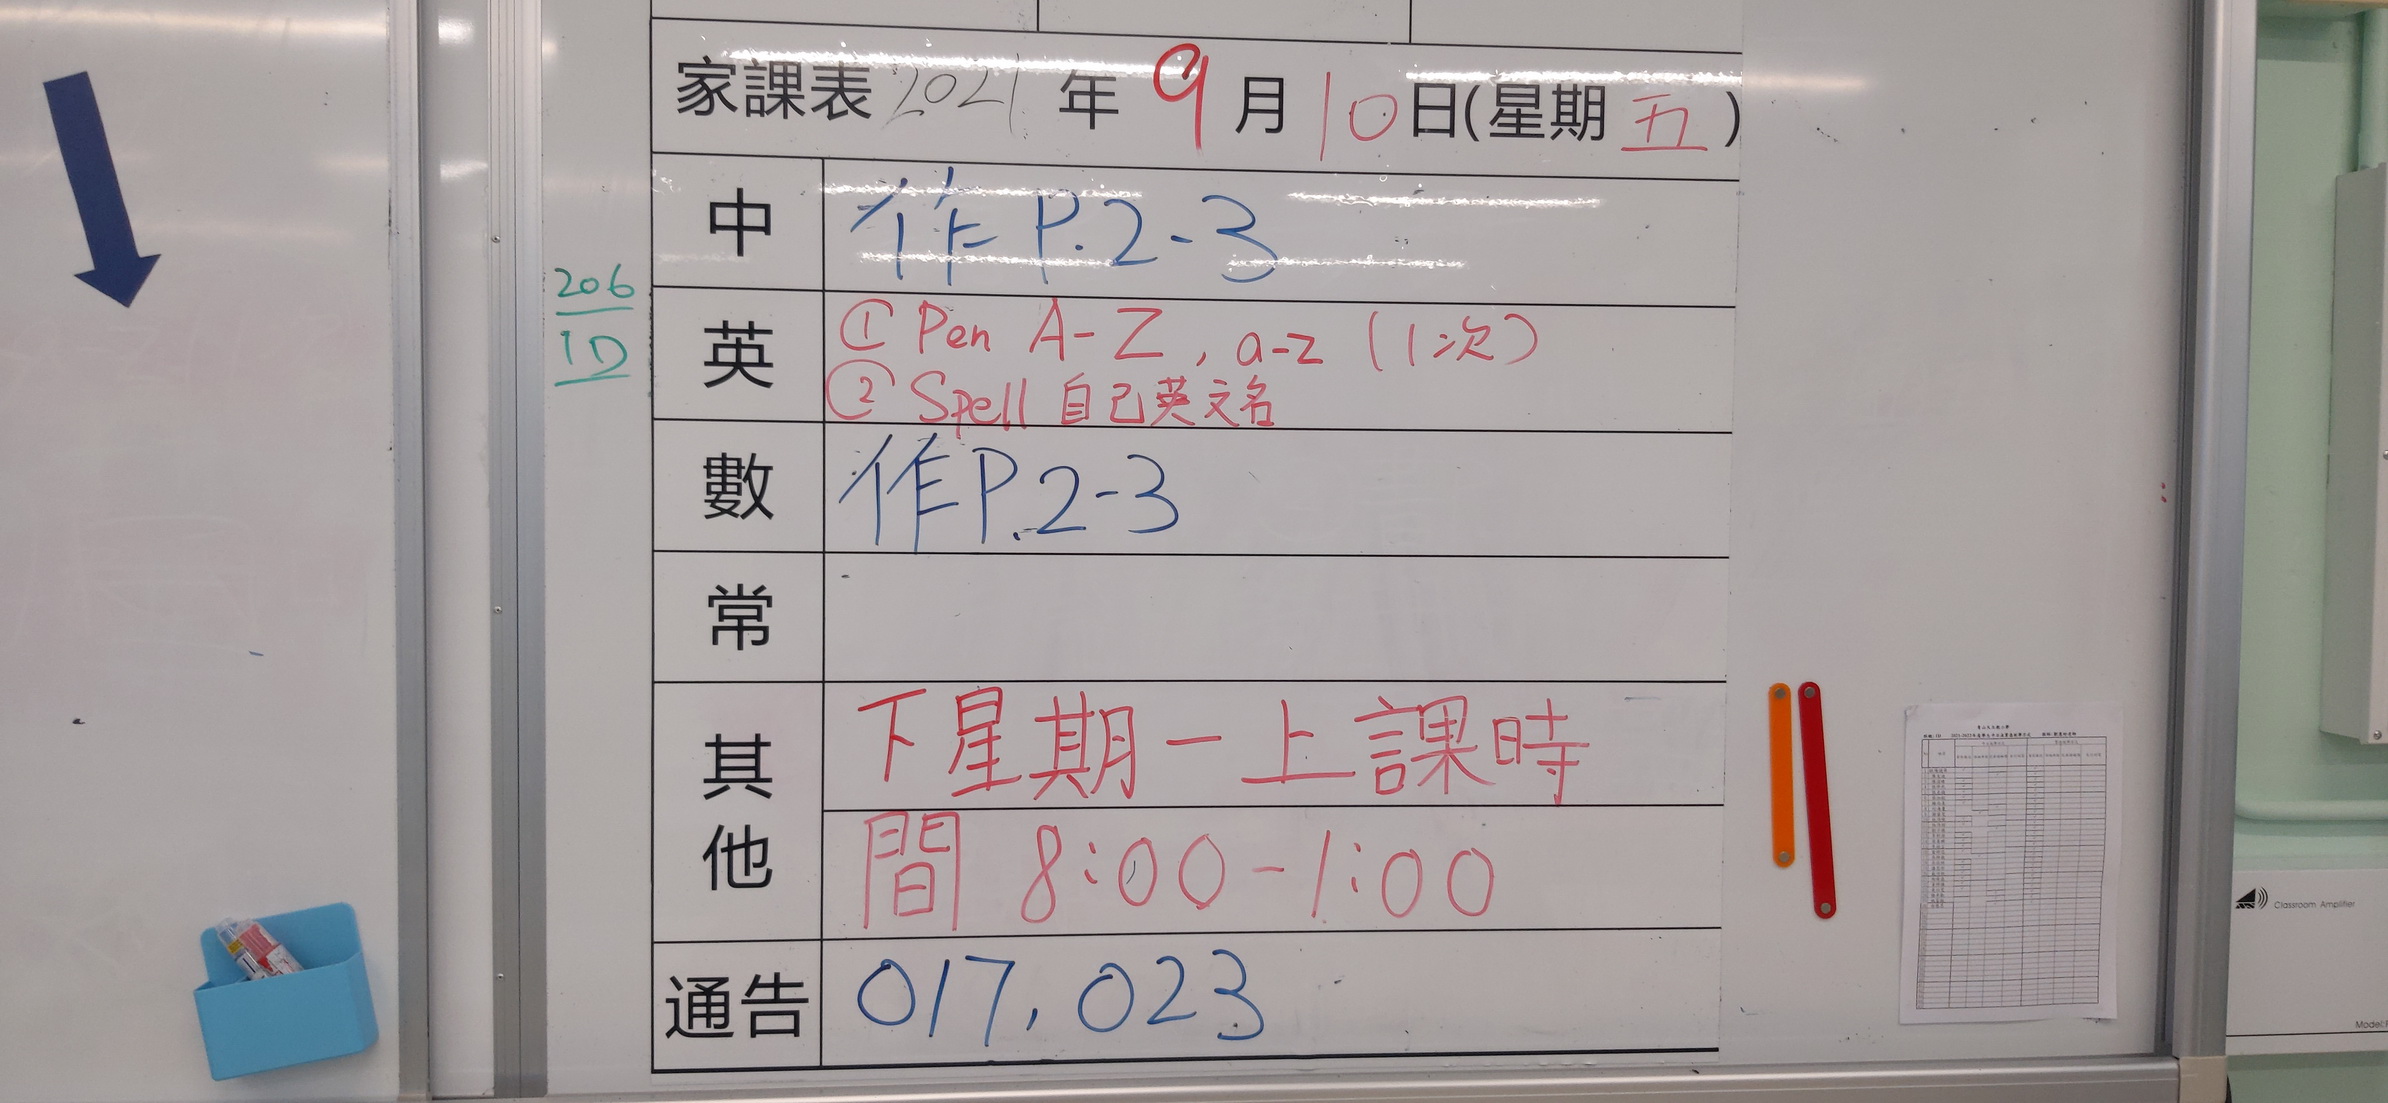 家課表 2021 年 9 月 10 日(星期 五 )
206
1D
中 作 P.2-3
英 ① Pen A-Z, a-z (1次)
② Spell 自己英文名
數 作 P.2-3
常
其他 下星期一上課時
間 8:00-1:00
通告 017, 023
Classroom Amplifier